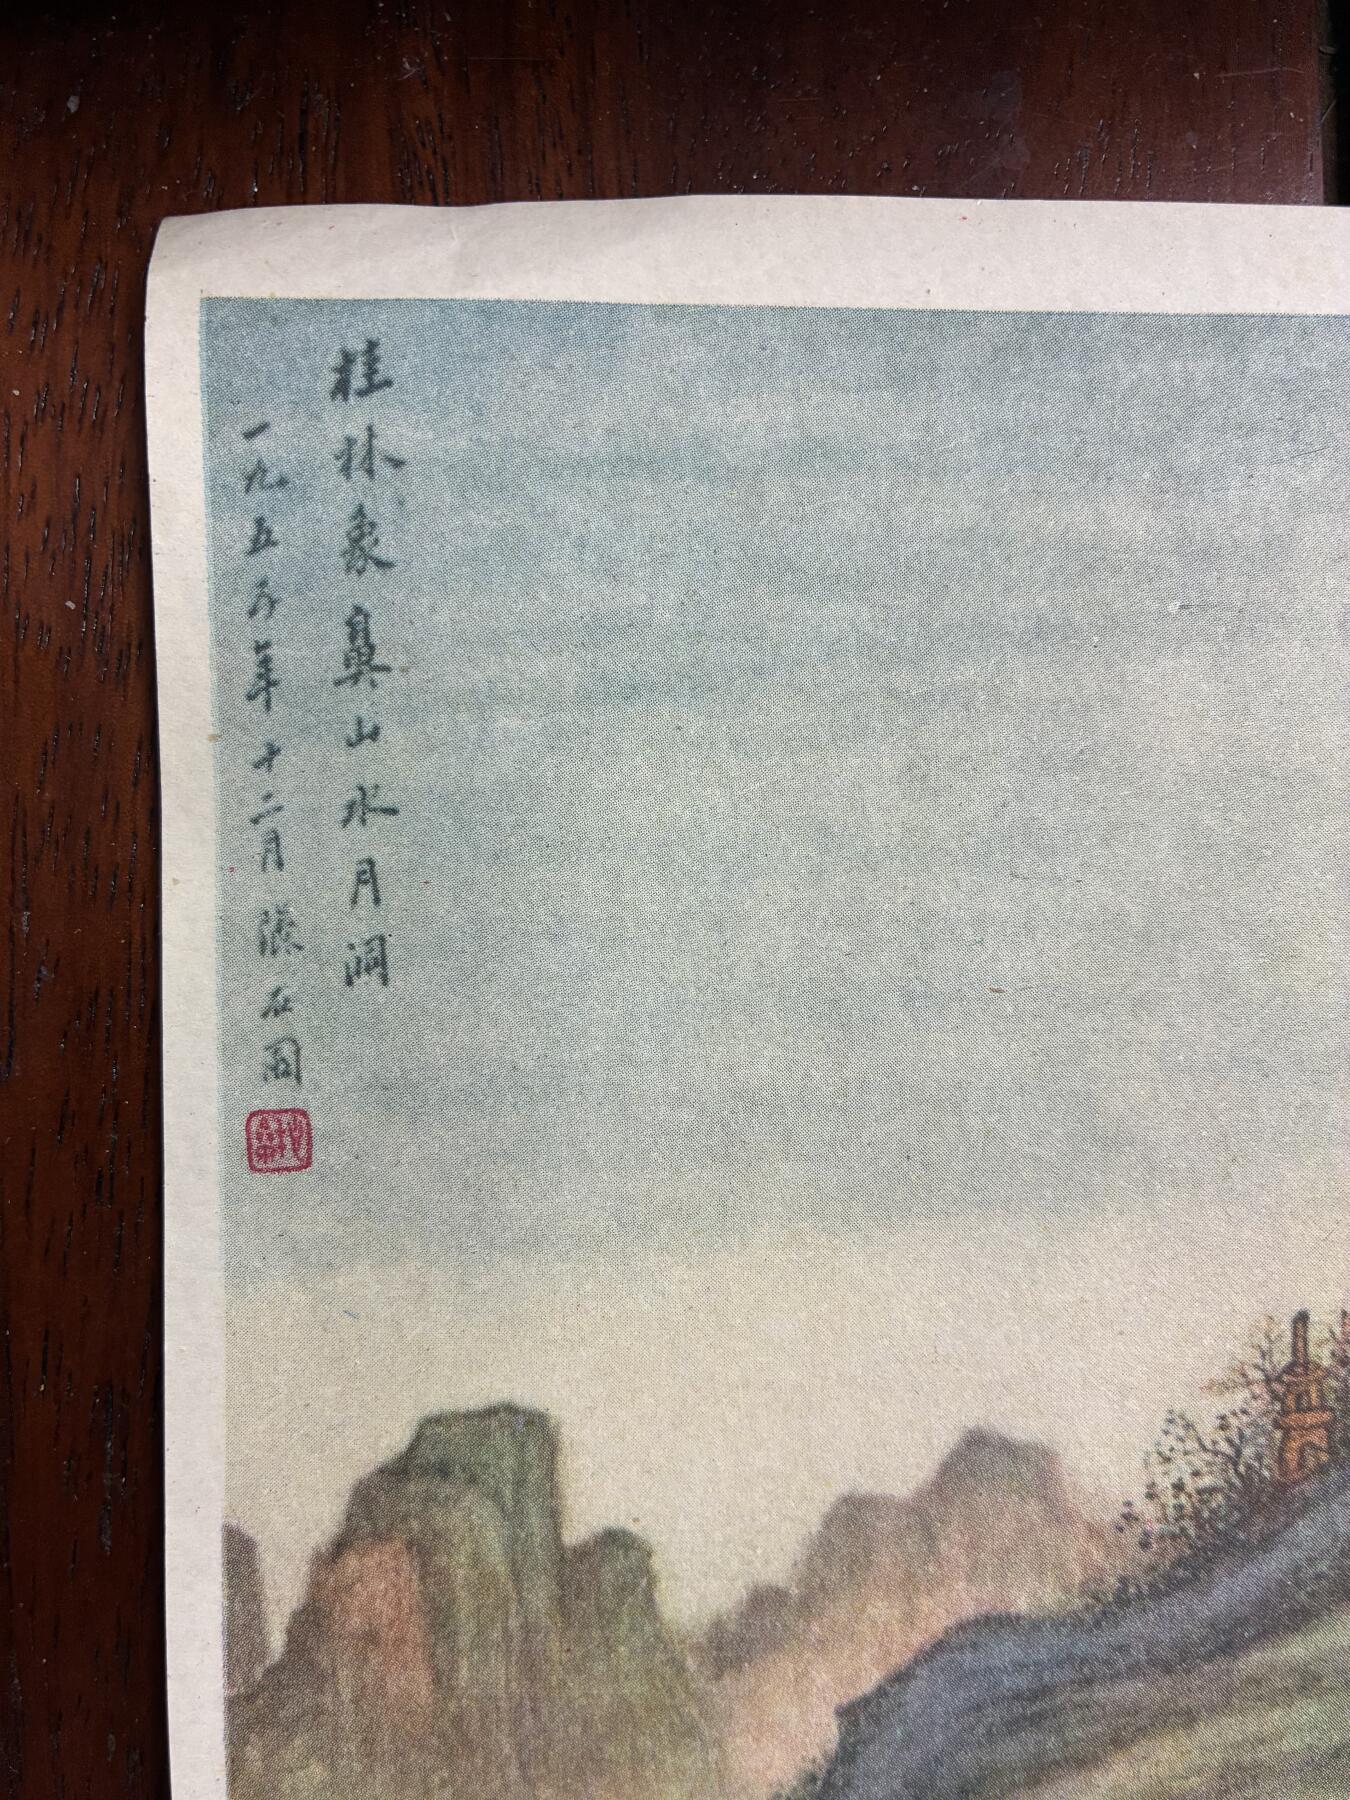 桂林象鼻山水月洞
一九五六年十二月張石園